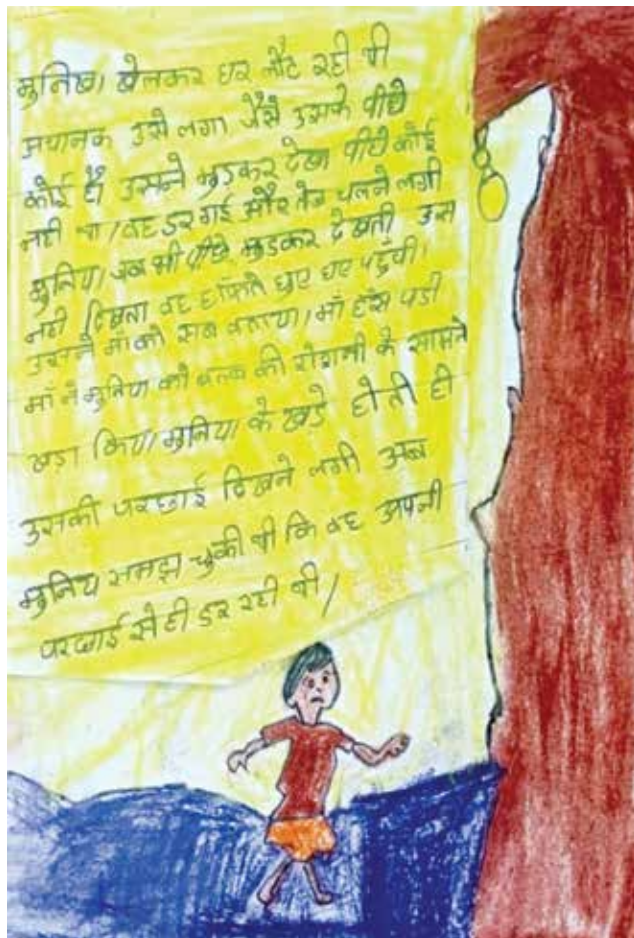 मुनिया खेलकर घर लौट रही थी
अचानक उसे लगा जैसे उसके पीछे
कोई हो उसने मुडकर देखा पीछे कोई
नही था/वह डर गई और तेज चलने लगी
मुनिया जब भी पीछे मुडकर देखती उस
नही दिखता वह हाँफते हुए घर पहुँची।
उसने माँ को सब बताया/माँ हँस पडी
माँ ने मुनिया को बल्ब की रोशनी के सामने
खड़ा किया/मुनिया के खडे होती ही
उसकी परछाई दिखने लगी अब
मुनिय समझ चुकी थी कि वह अपनी
परछाई से ही डर रही थी/